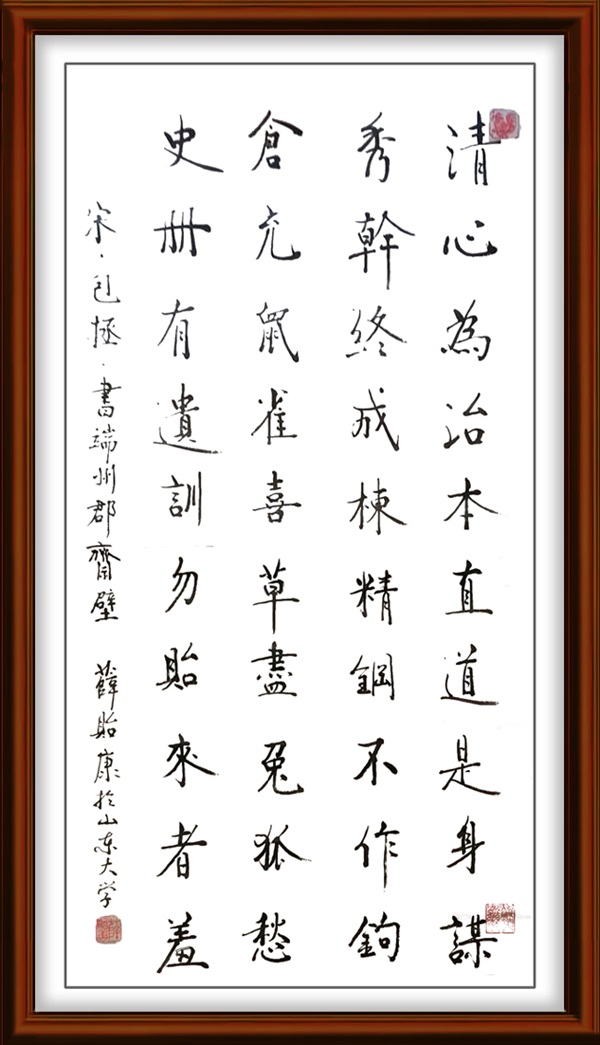 清心為治本直道是身謀
秀幹終成棟精鋼不作鉤
倉充鼠雀喜草盡兔狐愁
史冊有遺訓勿貽來者羞
宋·包拯·書端州郡齋壁 薛貽康於山东大学